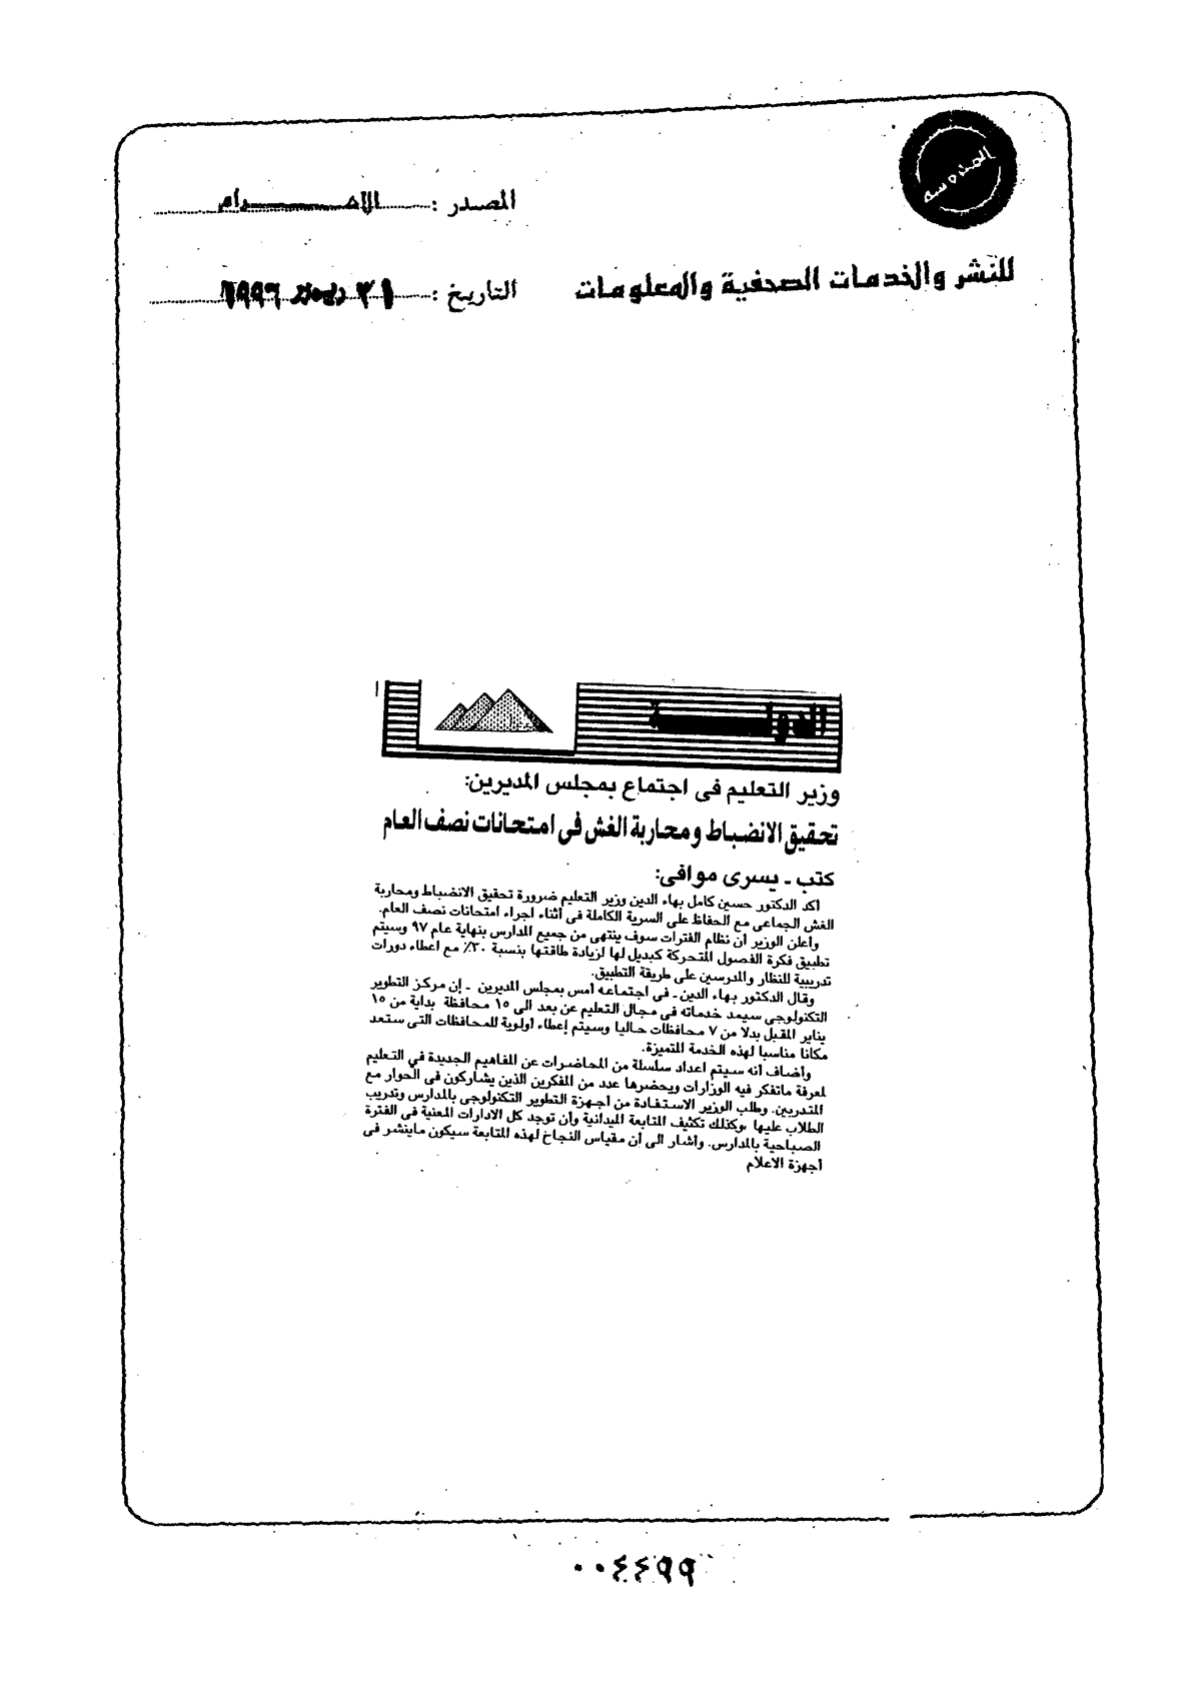 المدوسه
المصدر : الاهـــــرام
للنشر والخدمات الصحفية والمعلومات
التاريخ : ٣١ ديسمبر ١٩٩٦
الدولـــــة
وزير التعليم فى اجتماع بمجلس المديرين:
تحقيق الانضباط ومحاربة الغش فى امتحانات نصف العام
كتب ـ يسرى موافى:
أكد الدكتور حسين كامل بهاء الدين وزير التعليم ضرورة تحقيق الانضباط ومحاربة
الغش الجماعى مع الحفاظ على السرية الكاملة فى أثناء اجراء امتحانات نصف العام.
وأعلن الوزير أن نظام الفترات سوف ينتهى من جميع المدارس بنهاية عام ٩٧ وسيتم
تطبيق فكرة الفصول المتحركة كبديل لها لزيادة طاقتها بنسبة ٣٠٪ مع اعطاء دورات
تدريبية للنظار والمدرسين على طريقة التطبيق.
وقال الدكتور بهاء الدين ـ فى اجتماعه أمس بمجلس المديرين ـ إن مركز التطوير
التكنولوجى سيمد خدماته فى مجال التعليم عن بعد الى ١٥ محافظة بداية من ١٥
يناير المقبل بدلا من ٧ محافظات حاليا وسيتم إعطاء أولوية للمحافظات التى ستعد
مكانا مناسبا لهذه الخدمة المتميزة.
وأضاف أنه سيتم اعداد سلسلة من المحاضرات عن المفاهيم الجديدة في التعليم
لمعرفة ماتفكر فيه الوزارات ويحضرها عدد من المفكرين الذين يشاركون فى الحوار مع
المتدربين. وطلب الوزير الاستفادة من أجهزة التطوير التكنولوجى بالمدارس وتدريب
الطلاب عليها ،وكذلك تكثيف المتابعة الميدانية وأن توجد كل الادارات المعنية فى الفترة
الصباحية بالمدارس. وأشار الى أن مقياس النجاح لهذه المتابعة سيكون ماينشر فى
أجهزة الاعلام
٠٠٤٤٩٩